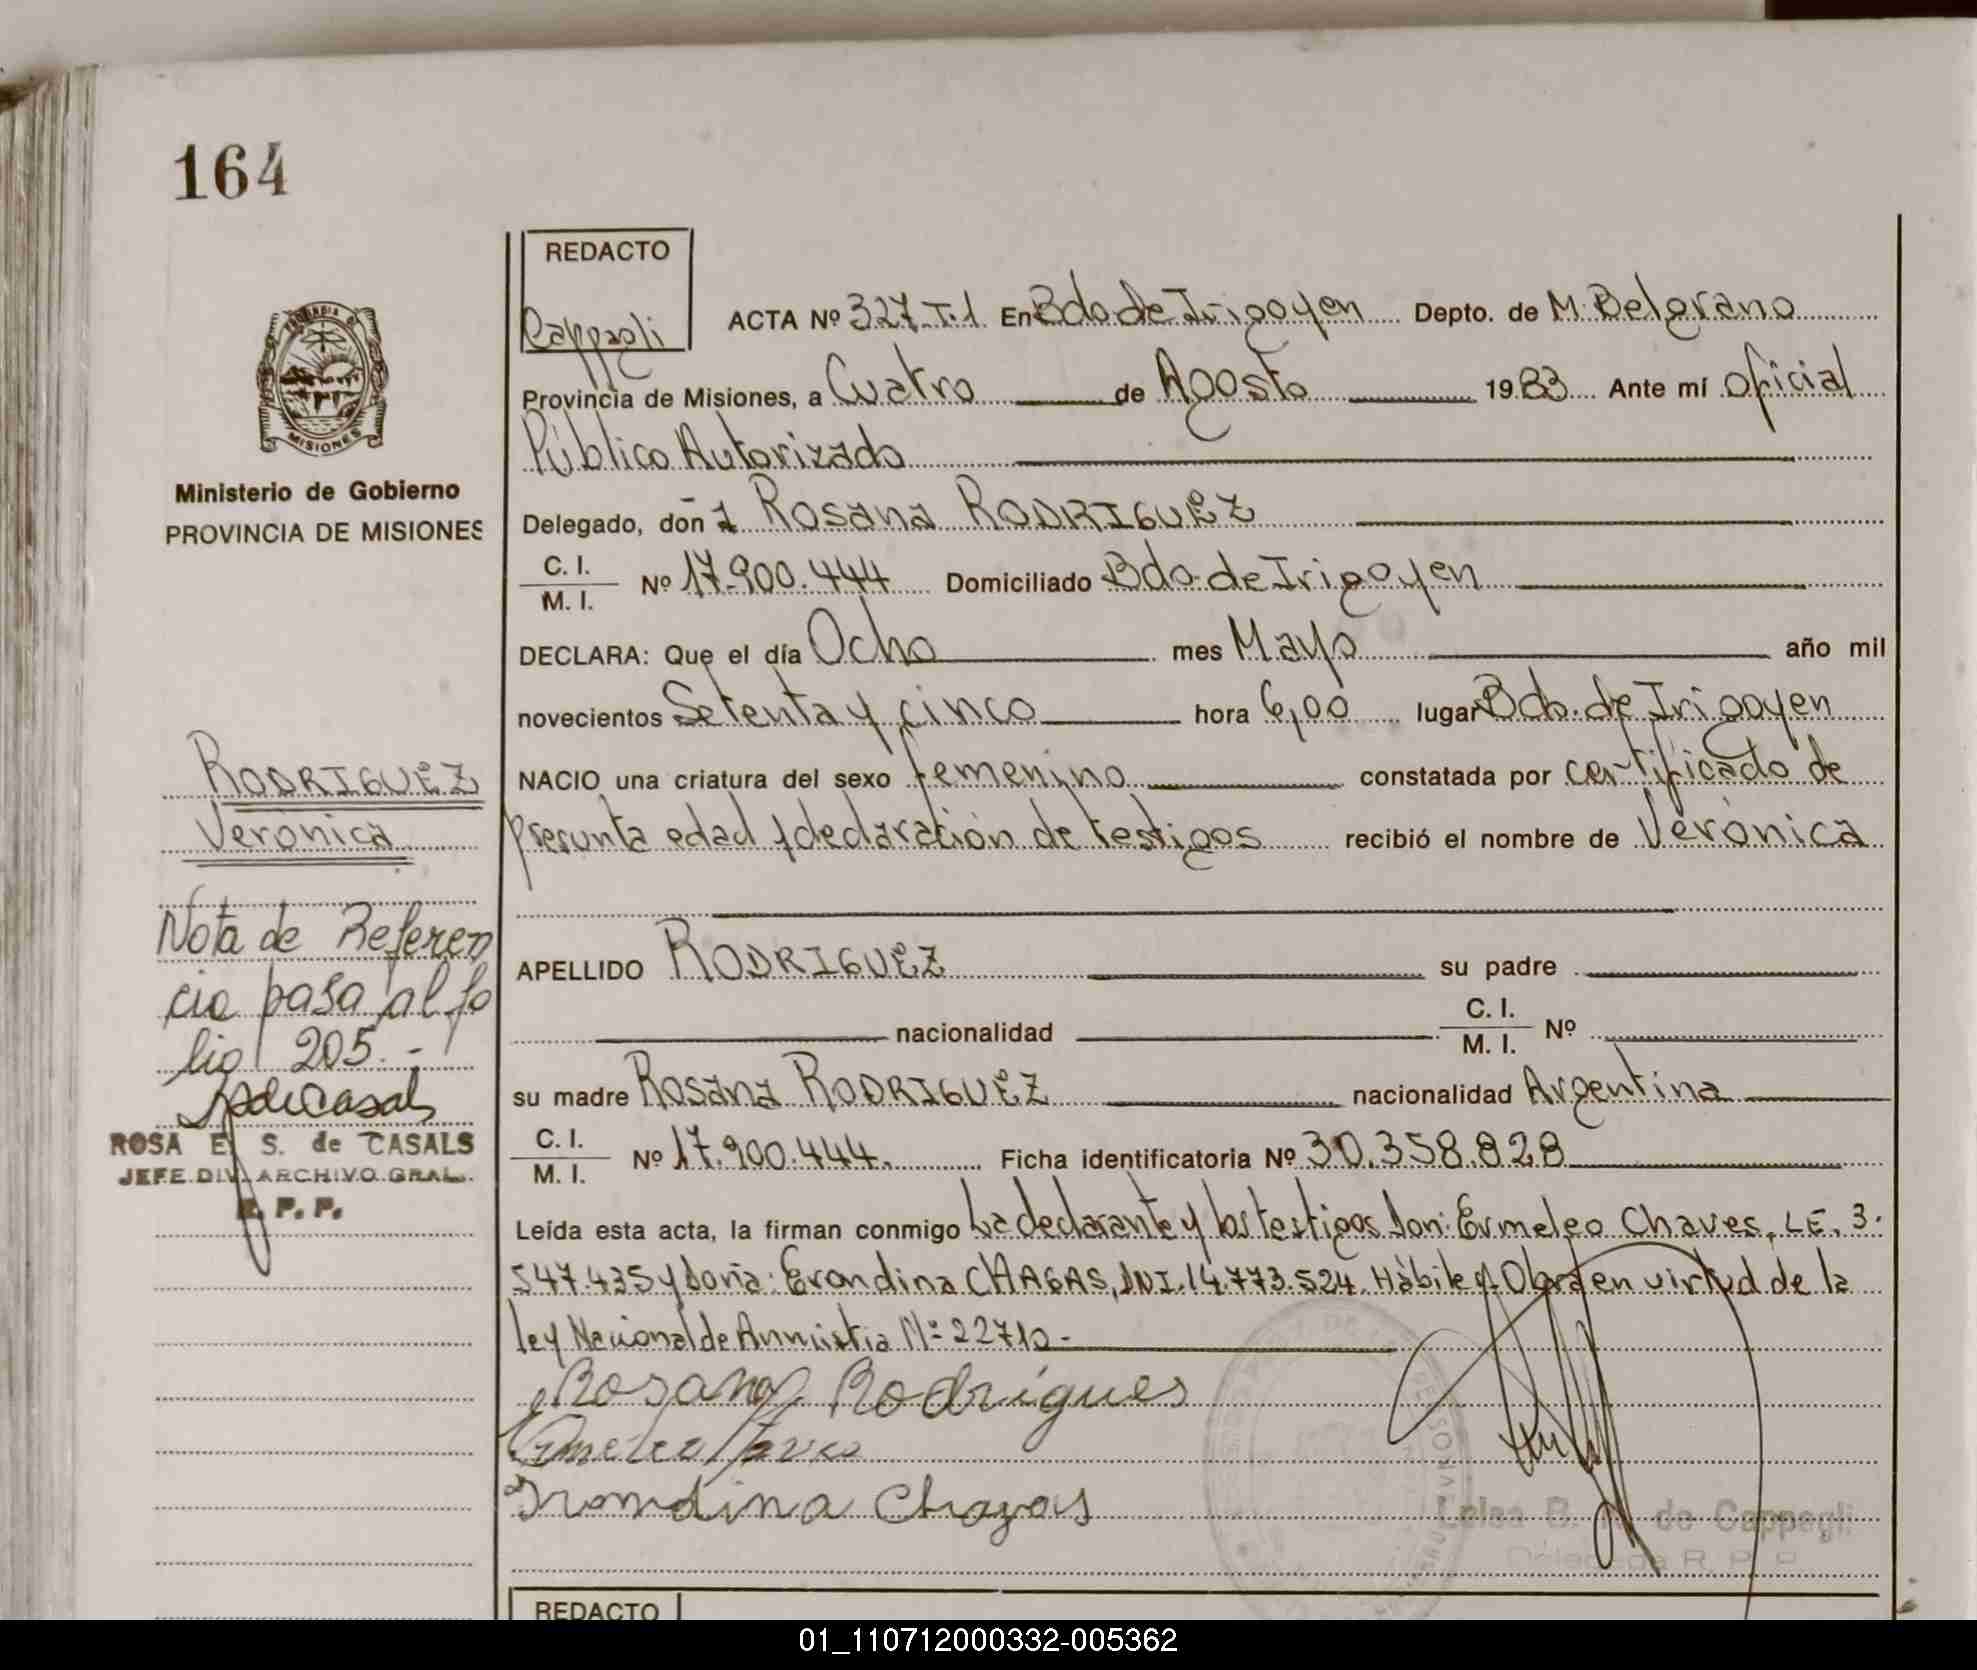 164
REDACTO
Cappagli
ACTA Nº 327.T.1 En Bdo de Irigoyen Depto. de M. Belgrano
Provincia de Misiones, a Cuatro de Agosto 1983 Ante mí oficial
Público Autorizado
Delegado, doña Rosana RODRIGUEZ
C. I.
M. I. Nº 17.900.444 Domiciliado Bdo. de Irigoyen
DECLARA: Que el día Ocho mes Mayo año mil
novecientos Setenta y cinco hora 6,00 lugar Bdo. de Irigoyen
NACIO una criatura del sexo femenino constatada por certificado de
presunta edad y declaración de testigos recibió el nombre de Verónica
APELLIDO RODRIGUEZ su padre
nacionalidad C. I.
M. I. Nº
su madre Rosana RODRIGUEZ nacionalidad Argentina
C. I.
M. I. Nº 17.900.444. Ficha identificatoria Nº 30.358.828
Leída esta acta, la firman conmigo La declarante y los testigos don: Ermeleo Chaves, LE. 3.
547.435 y doña: Erondina CHAGAS, DNI. 14.773.524. Hábiles. Obra en virtud de la
ley Nacional de Amnistia Nº 22710-
Rosana Rodrigues
Erondina Chagas
Luisa B. de Cappagli
Delegada R. P. P.
PROVINCIA DE
MISIONES
Ministerio de Gobierno
PROVINCIA DE MISIONES
RODRIGUEZ
Verónica
Nota de Referen
cia pasa al fo
lio 205.-
SdeCasals
ROSA E. S. de CASALS
JEFE DIV. ARCHIVO GRAL.
R. P. P.
REDACTO
01_110712000332-005362